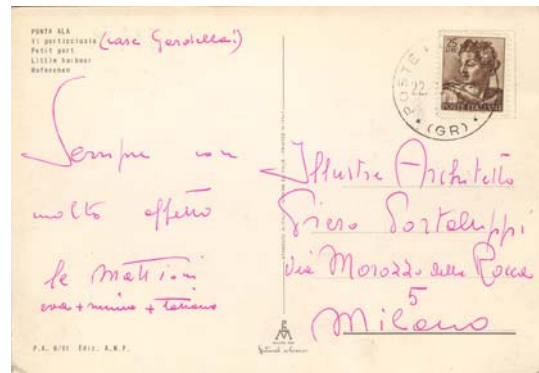 PUNTA ALA
Il porticciolo (case Gardella!)
Petit port
Little harbour
Sempre con
molto affetto
le Mattioni
eva + mimma + Tatiana
P.A. 6/91 Ediz. A.N.P.
POSTE ITALIANE
POSTE
22
(GR)
Illustre Architetto
Piero Portaluppi
via Morozzo della Rocca
5
Milano